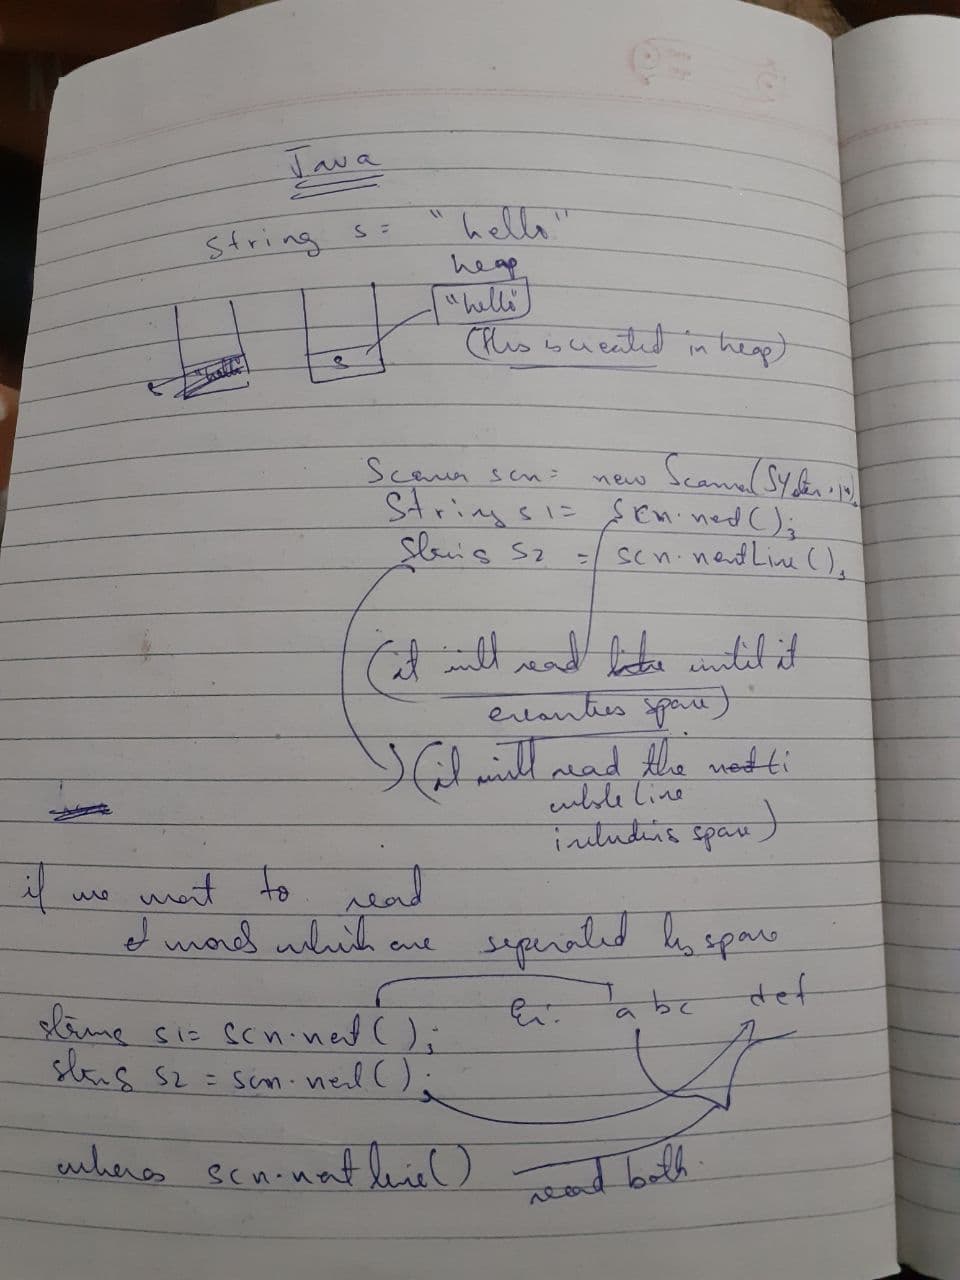 Java
String s = "hello"
heap
"hello"
(This is created in heap)
s
"hello"
Scanner scn = new Scanner(System.in)
String s1 = scn.next();
String s2 = scn.nextLine();
(it will read until it
encounters space)
(it will read the
whole line
including space)
if we want to read
words which are seperated by space
Ex: abc def
string s1 = scn.next();
string s2 = scn.next();
wheras scn.nextline()
read both.